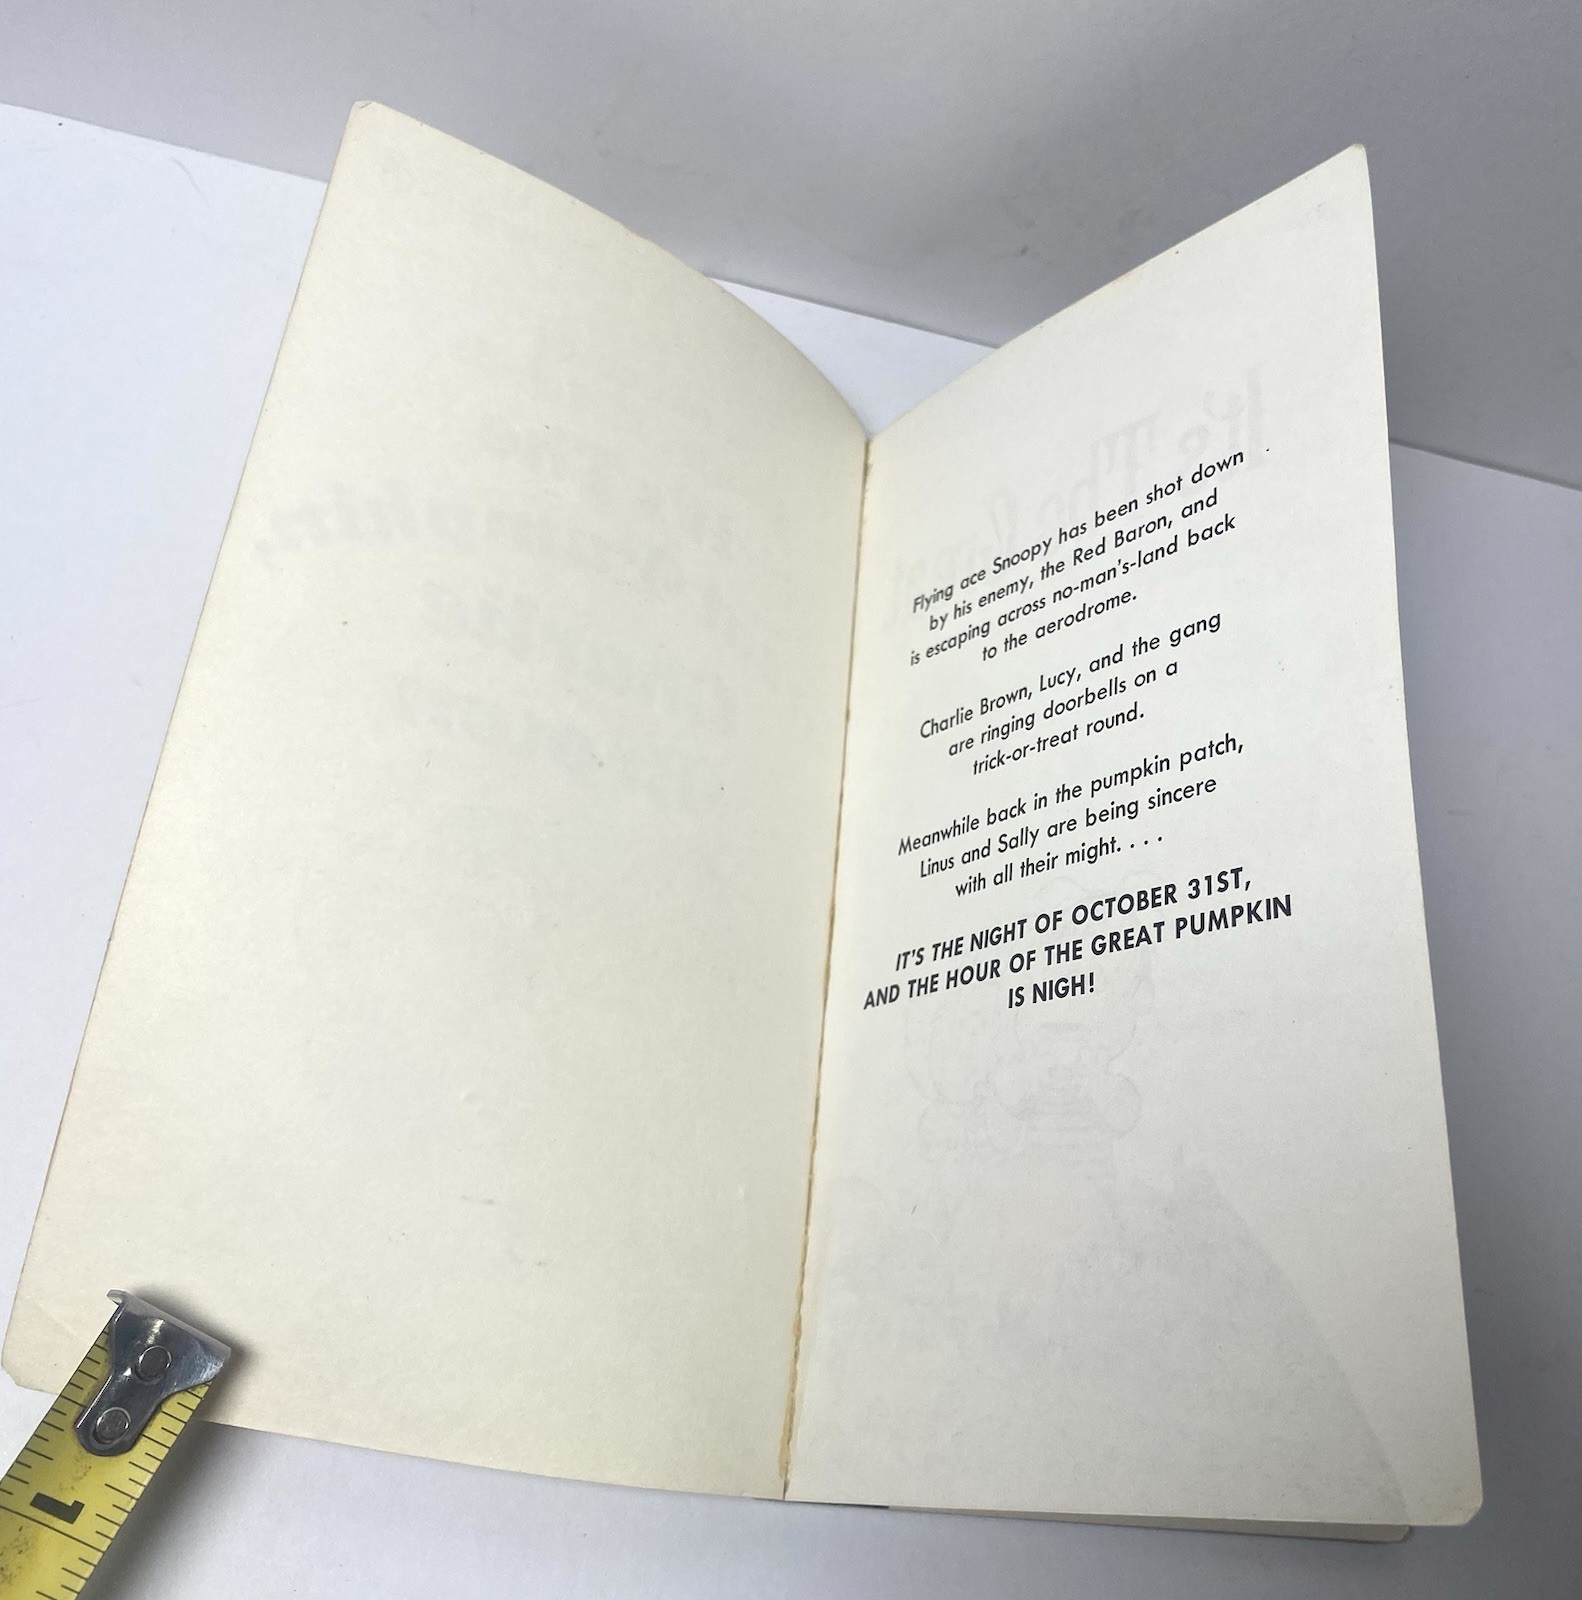 Flying ace Snoopy has been shot down
by his enemy, the Red Baron, and
is escaping across no-man's-land back
to the aerodrome.
Charlie Brown, Lucy, and the gang
are ringing doorbells on a
trick-or-treat round.
Meanwhile back in the pumpkin patch,
Linus and Sally are being sincere
with all their might. . . .
IT'S THE NIGHT OF OCTOBER 31ST,
AND THE HOUR OF THE GREAT PUMPKIN
IS NIGH!
1